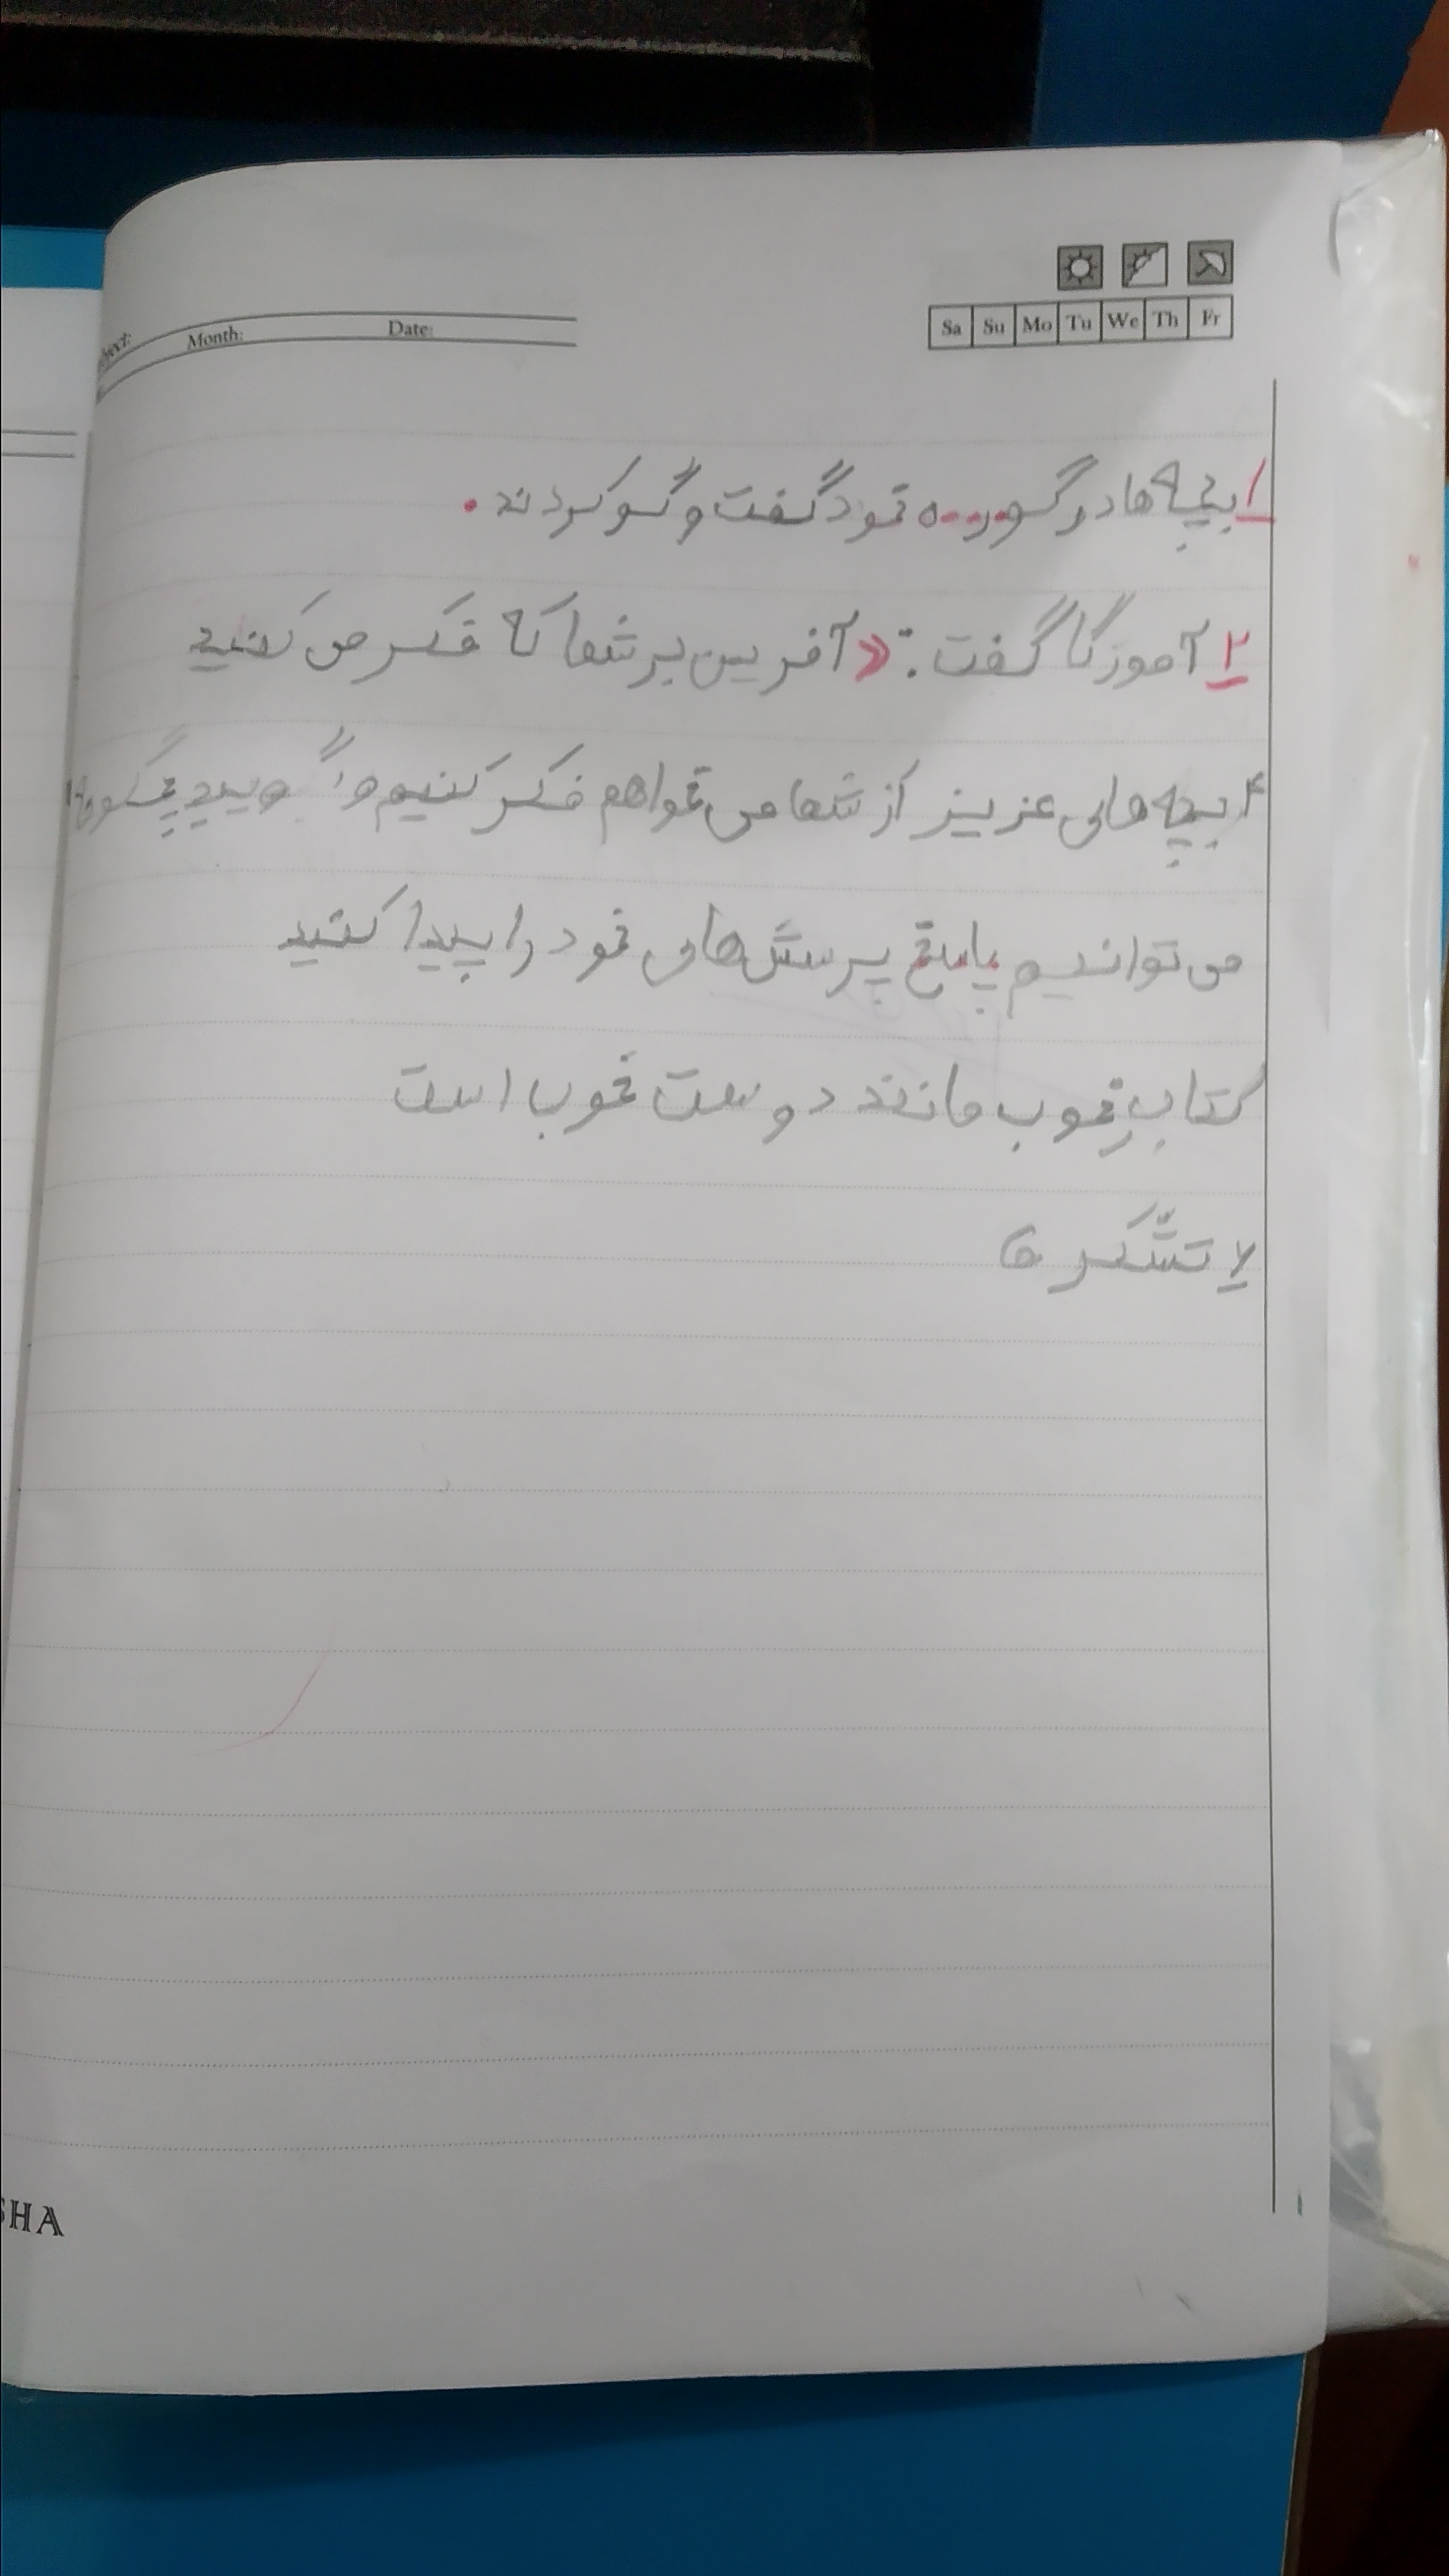 Sa Su Mo Tu We Th Fr
Month: Date:
۱ بچه ها در گوره خود گفت و گو کردند.
۲ آموزگا گفت: «آفرین بر شما که فکر می کنید
بچه های عزیز از شما می خواهم فکر کنیم و گویید چگونه
می توانیم پاسخ پرسش های خود را پیدا کنید
کتابِ خوب مانند دوست خوب است
تشّکر
SHA